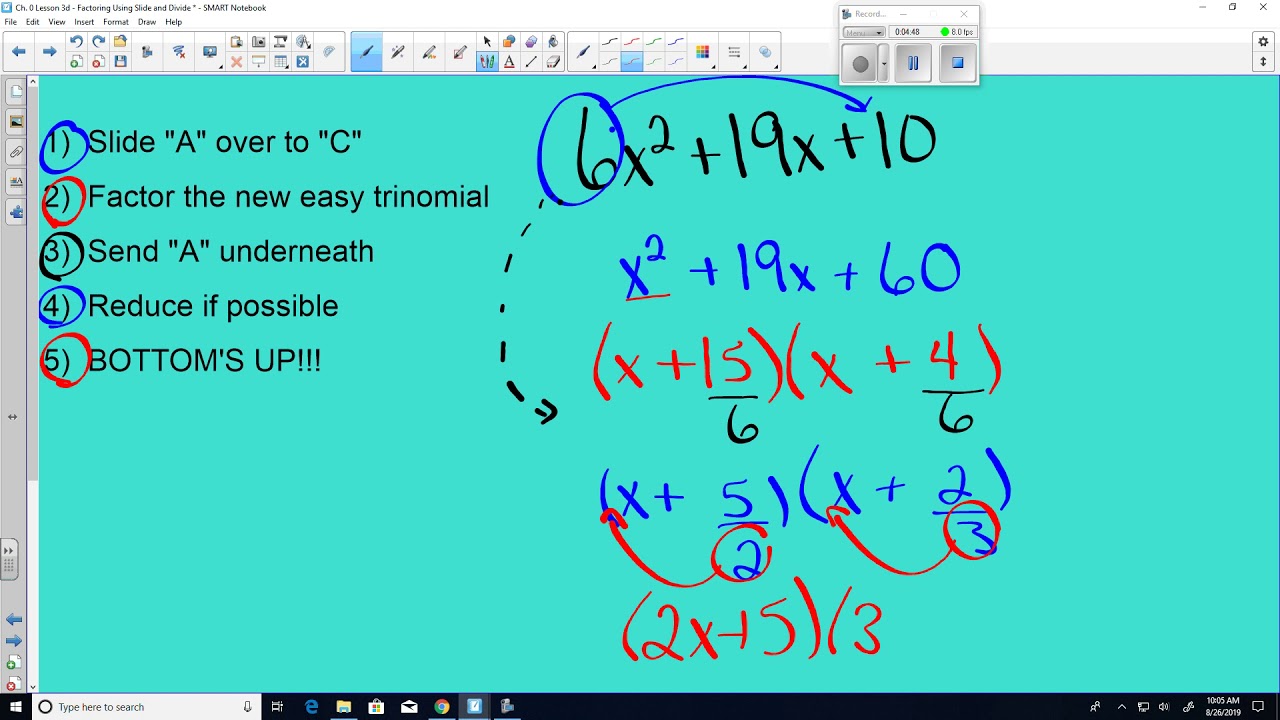 Ch. 0 Lesson 3d - Factoring Using Slide and Divide * - SMART Notebook
File Edit View Insert Format Draw Help
Record...
Menu 0:04:48 8.0 fps
1) Slide "A" over to "C"
2) Factor the new easy trinomial
3) Send "A" underneath
4) Reduce if possible
5) BOTTOM'S UP!!!
6x² + 19x + 10
x² + 19x + 60
(x + 15/6)(x + 4/6)
(x + 5/2)(x + 2/3)
(2x+5)(3
Type here to search
10:05 AM
8/26/2019